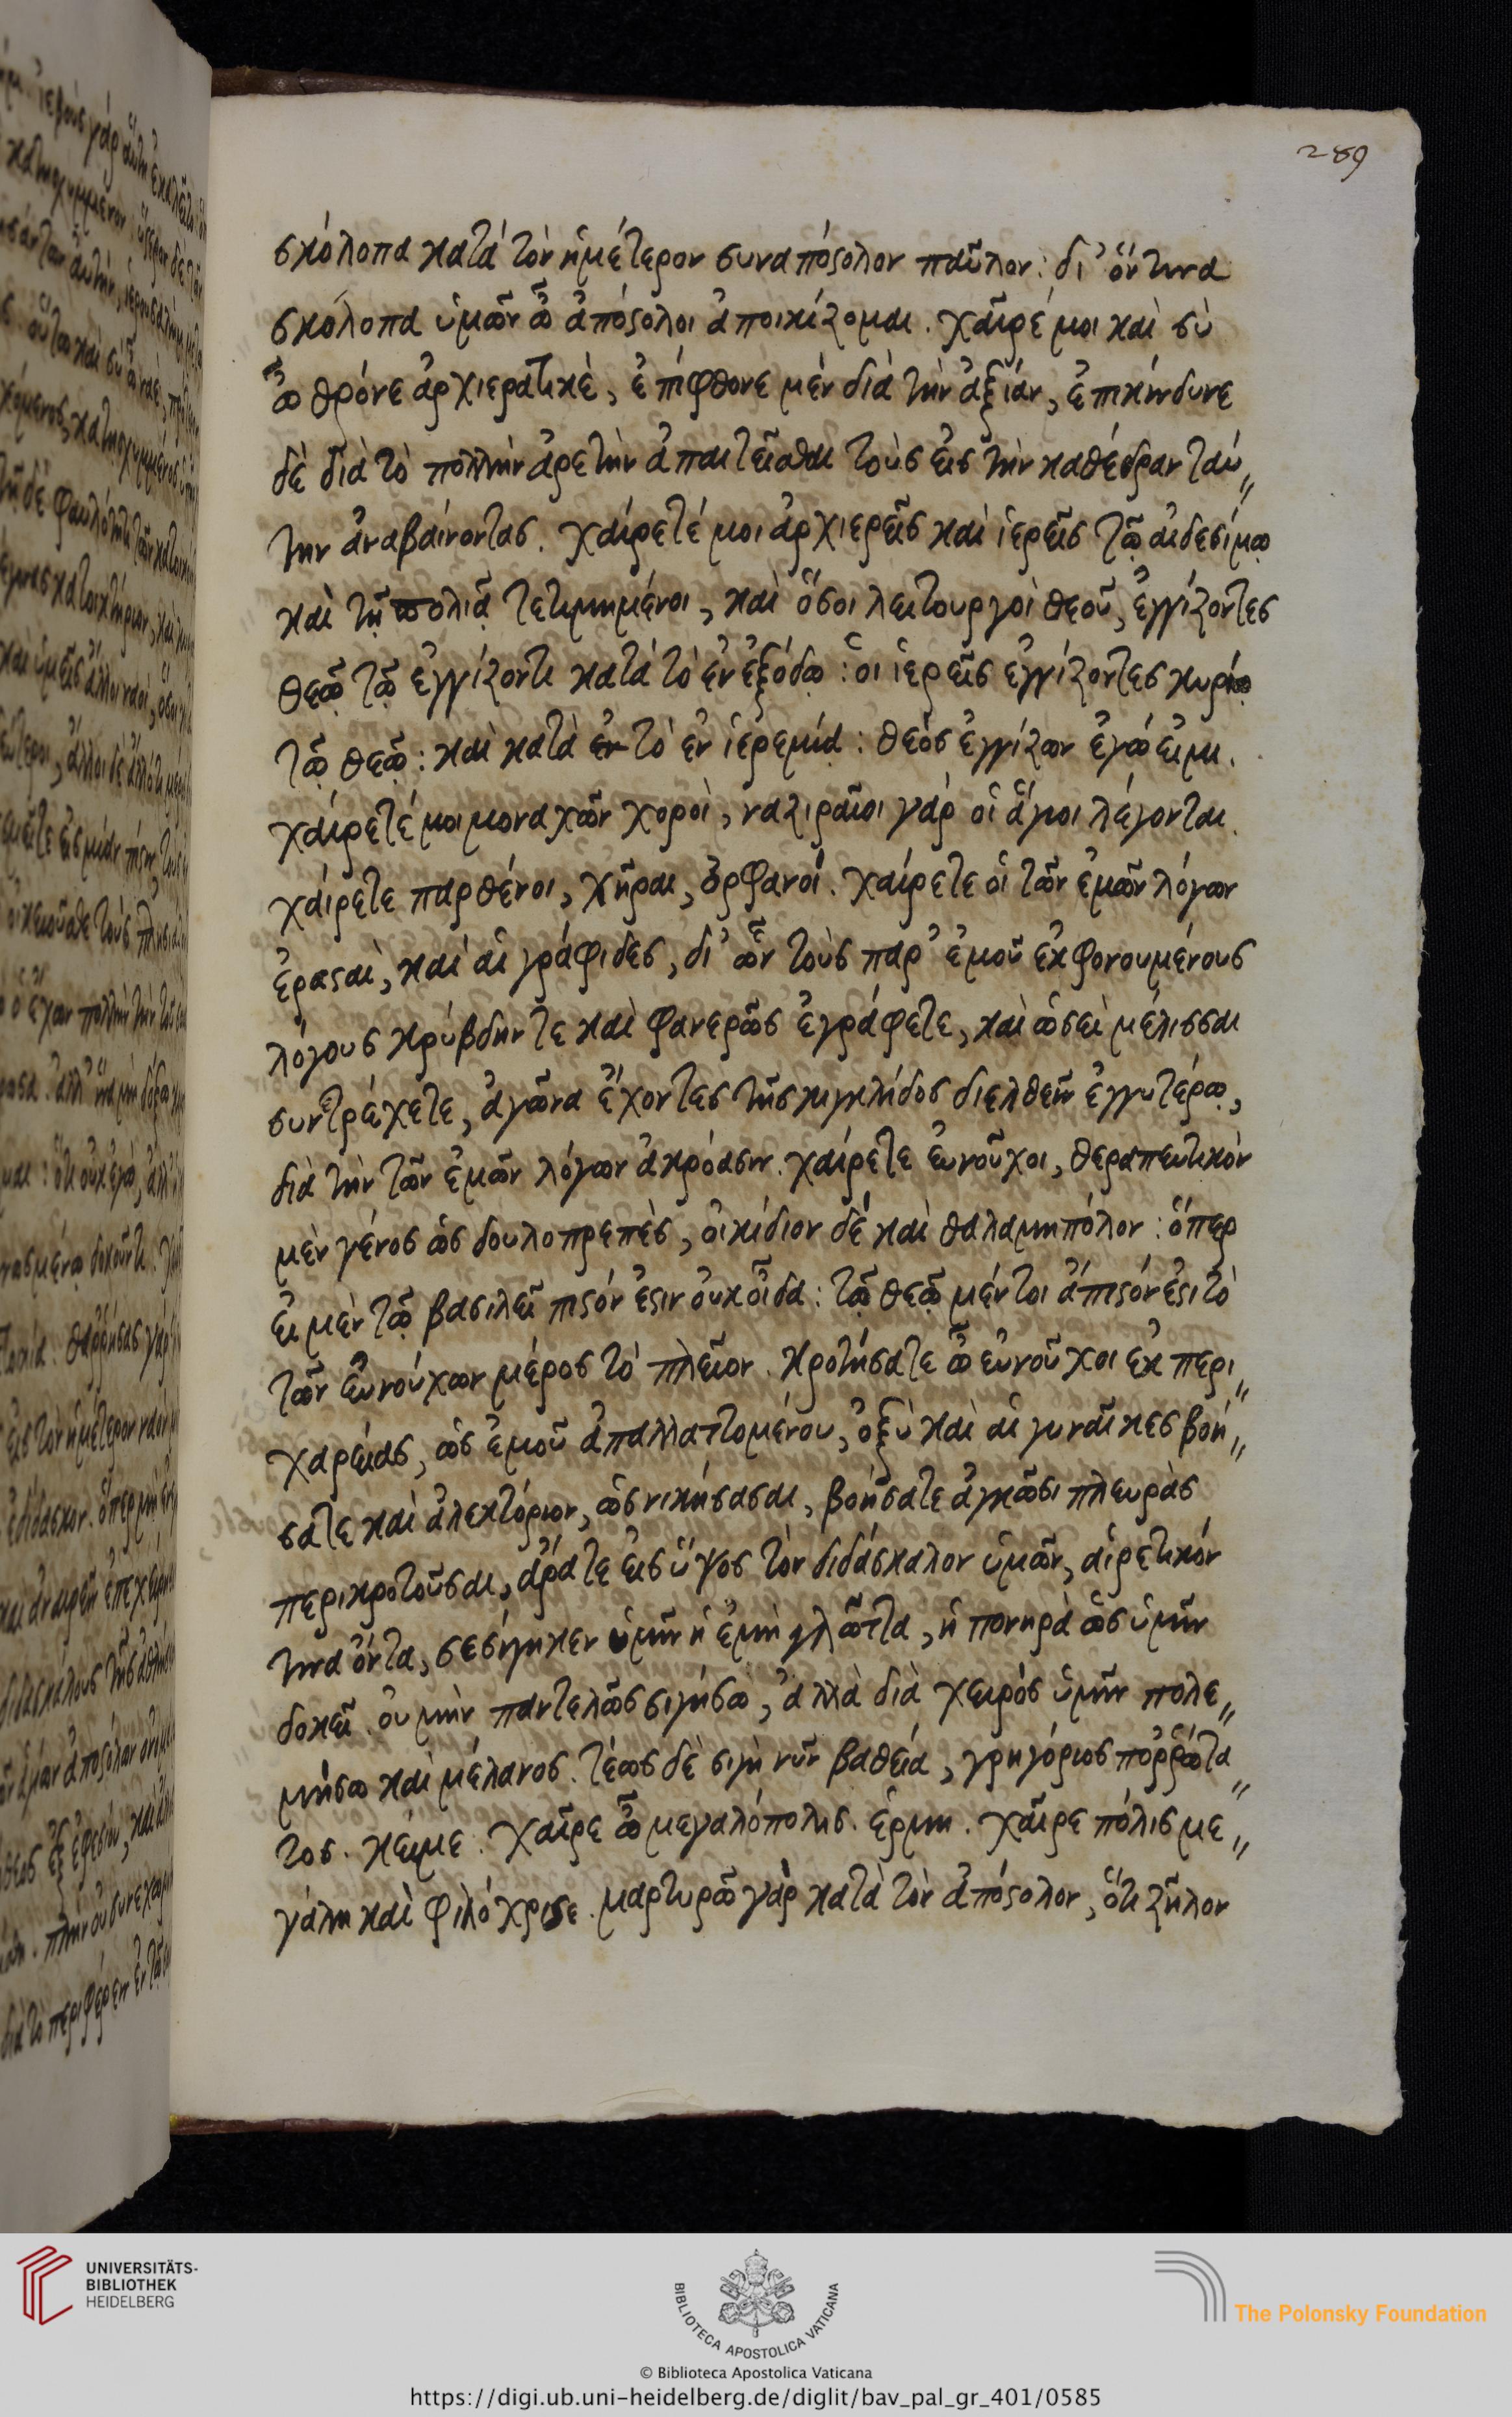 289
σκόλοπα κατὰ τὸν ἡμέτερον συναπόστολον παῦλον: δι' ὅν τινα
σκόλοπα ὑμῶν ὦ ἀπόστολοι ἀποικίζομαι. χαῖρέ μοι καὶ σὺ
ὦ θρόνε ἀρχιερατικὲ, ἐπίφθονε μὲν διὰ τὴν ἀξίαν, ἐπικίνδυνε
δὲ διὰ τὸ πολλὴν ἀρετὴν ἀπαιτεῖσθαι τοὺς εἰς τὴν καθέδραν ταύ〃
την ἀναβαίνοντας. χαίρετέ μοι ἀρχιερεῖς καὶ ἱερεῖς τῷ αἰδεσίμῳ
καὶ τῇ πολιᾷ τετιμημένοι, καὶ ὅσοι λειτουργοὶ θεοῦ, ἐγγίζοντες
θεῷ τῷ ἐγγίζοντι κατὰ τὸ ἐν ἐξόδῳ: οἱ ἱερεῖς ἐγγίζοντες κυρίῳ
τῷ θεῷ: καὶ κατὰ ἐν τὸ ἐν ἱερεμίᾳ: θεὸς ἐγγίζων ἐγώ εἰμι.
χαίρετέ μοι μοναχῶν χοροὶ, ναζιραῖοι γὰρ οἱ ἅγιοι λέγονται.
χαίρετε παρθένοι, χῆραι, ὀρφανοί. χαίρετε οἱ τῶν ἐμῶν λόγων
ἐρασταὶ, καὶ αἱ γράφιδες, δι' ὧν τοὺς παρ' ἐμοῦ ἐκφονουμένους
λόγους κρύβδην τε καὶ φανερῶς ἐγράφετε, καὶ ὡσεὶ μέλισσαι
συντρέχετε, ἀγῶνα ἔχοντες τῆς κιγκλίδος διελθεῖν ἐγγυτέρῳ,
διὰ τὴν τῶν ἐμῶν λόγων ἀκρόασιν. χαίρετε εὐνοῦχοι, θεραπευτικὸν
μὲν γένος ὡς δουλοπρεπὲς, οἰκίδιον δὲ καὶ θαλαμηπόλον: ὅπερ
εἰ μὲν τῷ βασιλεῖ πιστόν ἐστιν οὐκ οἶδα: τῷ θεῷ μέντοι ἄπιστόν ἐστι τὸ
τῶν εὐνούχων μέρος τὸ πλεῖον. κροτήσατε ὦ εὐνοῦχοι ἐκ περι〃
χαρείας, ὡς ἐμοῦ ἀπαλλαττομένου, ὀξὺ καὶ αἱ γυναῖκες βοή〃
σατε καὶ ἀλεκτόριον, ὡς νικήσασαι, βοήσατε ἀγκῶσι πλευρὰς
περικροτοῦσαι, ἄρατε εἰς ὕψος τὸν διδάσκαλον ὑμῶν, αἱρετικόν
τινα ὄντα, σεσίγηκεν ὑμῖν ἡ ἐμὴ γλῶττα, ἡ πονηρὰ ὡς ὑμῖν
δοκεῖ. οὐ μὴν παντελῶς σιγήσω, ἀλλὰ διὰ χειρὸς ὑμῖν πολε〃
μήσω καὶ μέλανος. τέως δὲ σιγὴ νῦν βαθεῖα, γρηγόριος πορρῥώτα〃
τος. κεῖμε. χαῖρε ὦ μεγαλόπολις. ἐρμη. χαῖρε πόλις με〃
γάλη καὶ φιλόχριστε. μαρτυρῶ γὰρ κατὰ τὸν ἀπόστολον, ὅτι ζῆλον
UNIVERSITÄTS-
BIBLIOTHEK
HEIDELBERG
BIBLIOTECA APOSTOLICA VATICANA
The Polonsky Foundation
© Biblioteca Apostolica Vaticana
https://digi.ub.uni-heidelberg.de/diglit/bav_pal_gr_401/0585